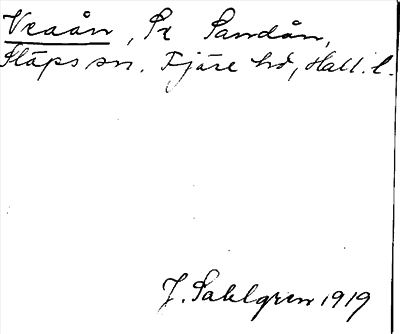 Vraån, Se Sandån,
Släps sn. Fjäre hd, Hall. l.
J. Sahlgren 1919